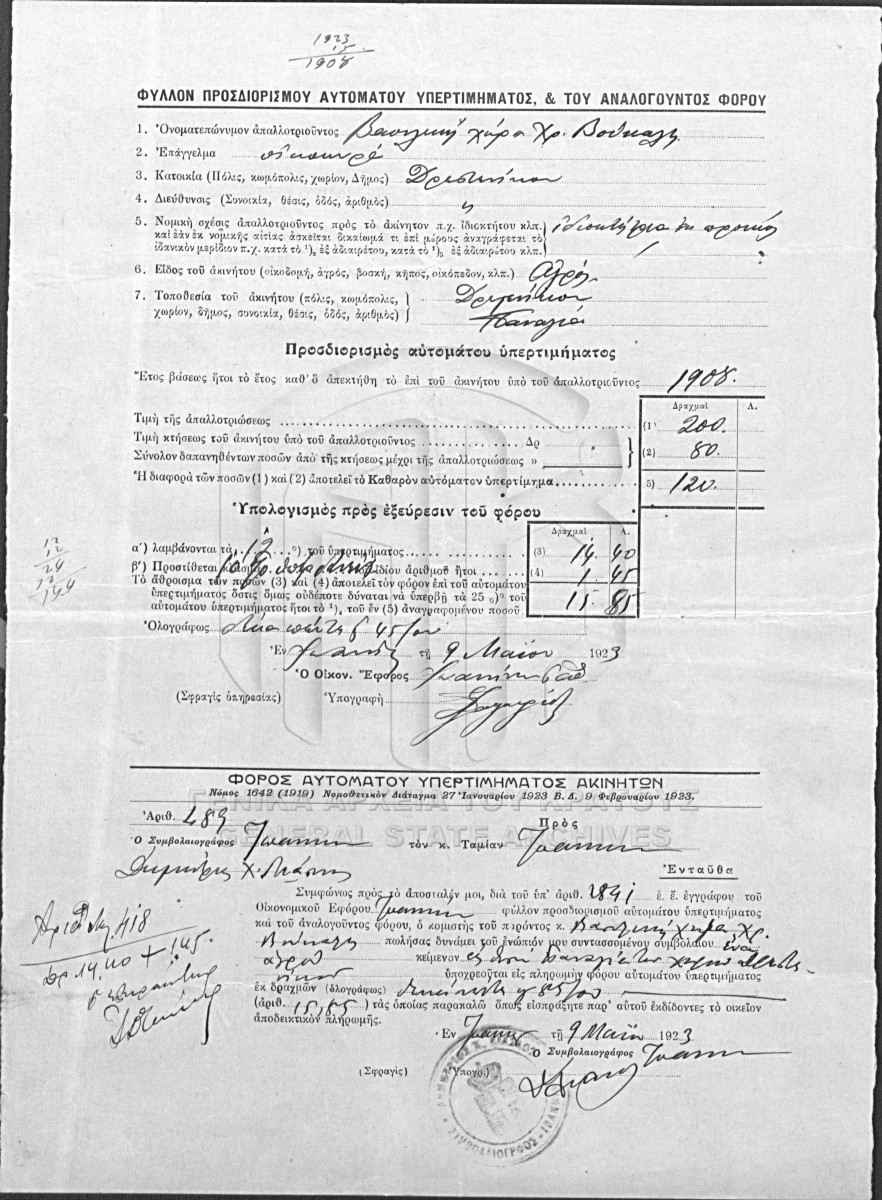 1923
15
1908
ΦΥΛΛΟΝ ΠΡΟΣΔΙΟΡΙΣΜΟΥ ΑΥΤΟΜΑΤΟΥ ΥΠΕΡΤΙΜΗΜΑΤΟΣ, & ΤΟΥ ΑΝΑΛΟΓΟΥΝΤΟΣ ΦΟΡΟΥ
1. Ὀνοματεπώνυμον ἀπαλλοτριοῦντος Βασιλικὴ χήρα Χρ.
2. Ἐπάγγελμα οἰκοκυρὰ
3. Κατοικία (Πόλις, κωμόπολις, χωρίον, Δῆμος)
4. Διεύθυνσις (Συνοικία, θέσις, ὁδός, ἀριθμὸς) "
5. Νομικὴ σχέσις ἀπαλλοτριοῦντος πρὸς τὸ ἀκίνητον π.χ. ἰδιοκτήτου κλπ. ἰδιοκτήτρια ἐκ προικὸς
καὶ ἐὰν ἐκ νομικῆς αἰτίας ἀσκεῖται δικαίωμά τι ἐπὶ μέρους ἀναγράφεται τὸ
ἰδανικὸν μερίδιον π.χ. κατὰ τὸ ¹)₂ ἐξ ἀδιαιρέτου, κατὰ τὸ ¹)₅ ἐξ ἀδιαιρέτου κλπ.
6. Εἶδος τοῦ ἀκινήτου (οἰκοδομή, ἀγρός, βοσκή, κῆπος, οἰκόπεδον, κλπ.) Ἀγρός
7. Τοποθεσία τοῦ ἀκινήτου (πόλις, κωμόπολις,
χωρίον, δῆμος, συνοικία, θέσις, ὁδός, ἀριθμὸς) Παναγιὰ
Προσδιορισμὸς αὐτομάτου ὑπερτιμήματος
Ἔτος βάσεως ἤτοι τὸ ἔτος καθ' ὃ ἀπεκτήθη τὸ ἐπὶ τοῦ ἀκινήτου ὑπὸ τοῦ ἀπαλλοτριοῦντος 1908.
Δραχμαὶ Λ.
Τιμὴ τῆς ἀπαλλοτριώσεως (1) 200.
Τιμὴ κτήσεως τοῦ ἀκινήτου ὑπὸ τοῦ ἀπαλλοτριοῦντος Δρ "
Σύνολον δαπανηθέντων ποσῶν ἀπὸ τῆς κτήσεως μέχρι τῆς ἀπαλλοτριώσεως » (2) 80.
Ἡ διαφορὰ τῶν ποσῶν (1) καὶ (2) ἀποτελεῖ τὸ Καθαρὸν αὐτόματον ὑπερτίμημα 5) 120.
Ὑπολογισμὸς πρὸς ἐξεύρεσιν τοῦ φόρου
Δραχμαὶ Λ.
α') λαμβάνονται τὰ 12 ο) τοῦ ὑπερτιμήματος (3) 14. 40
β') Προστίθεται ἰδίου ἀριθμοῦ ἤτοι (4) 1. 45
Τὸ ἄθροισμα τῶν ποσῶν (3) καὶ (4) ἀποτελεῖ τὸν φόρον ἐπὶ τοῦ αὐτομάτου
ὑπερτιμήματος ὅστις ὅμως οὐδέποτε δύναται νὰ ὑπερβῇ τὰ 25 ο)ο τοῦ
αὐτομάτου ὑπερτιμήματος ἤτοι τὸ ¹)₄ τοῦ ἐν (5) ἀναγραφομένου ποσοῦ. 15. 85
12
12
24
12
144
Ὁλογράφως
Ἐν τῇ 9 Μαΐου 1923
Ὁ Οἰκον. Ἔφορος
(Σφραγὶς ὑπηρεσίας) Ὑπογραφὴ
ΦΟΡΟΣ ΑΥΤΟΜΑΤΟΥ ΥΠΕΡΤΙΜΗΜΑΤΟΣ ΑΚΙΝΗΤΩΝ
Νόμος 1642 (1919) Νομοθετικὸν Διάταγμα 27 Ἰανουαρίου 1923 Β. Δ. 9 Φεβρουαρίου 1923.
ΓΕΝΙΚΑ ΑΡΧΕΙΑ ΤΟΥ ΚΡΑΤΟΥΣ
GENERAL STATE ARCHIVES
Ἀριθ. 489 Πρὸς
Ὁ Συμβολαιογράφος τὸν κ. Ταμίαν
Δημήτριος Χ. Ἐνταῦθα
Συμφώνως πρὸς τὸ ἀποσταλέν μοι, διὰ τοῦ ὑπ' ἀριθ. 2841 ἐ. ἔ. ἐγγράφου τοῦ
Οἰκονομικοῦ Ἐφόρου φύλλον προσδιορισμοῦ αὐτομάτου ὑπερτιμήματος
καὶ τοῦ ἀναλογοῦντος φόρου, ὁ κομιστὴς τοῦ παρόντος κ. Βασιλικὴ χήρα Χρ.
πωλήσας δυνάμει τοῦ ἐνώπιόν μου συντασσομένου συμβολαίου ἕνα
ἀγρὸν κείμενον εἰς θέσιν Παναγιὰ
ὑποχρεοῦται εἰς πληρωμὴν φόρου αὐτομάτου ὑπερτιμήματος
ἐκ δραχμῶν (ὁλογράφως)
(ἀριθ. 15,85) τὰς ὁποίας παρακαλῶ ὅπως εἰσπράξητε παρ' αὐτοῦ ἐκδίδοντες τὸ οἰκεῖον
ἀποδεικτικὸν πληρωμῆς.
418
14.40 + 1.45
Ἐν τῇ 9 Μαΐου 1923
Ὁ Συμβολαιογράφος
(Σφραγὶς) (Ὑπογρ.)
ΔΗΜΗΤΡΙΟΣ Χ.
ΣΥΜΒΟΛΑΙΟΓΡΑΦΟΣ